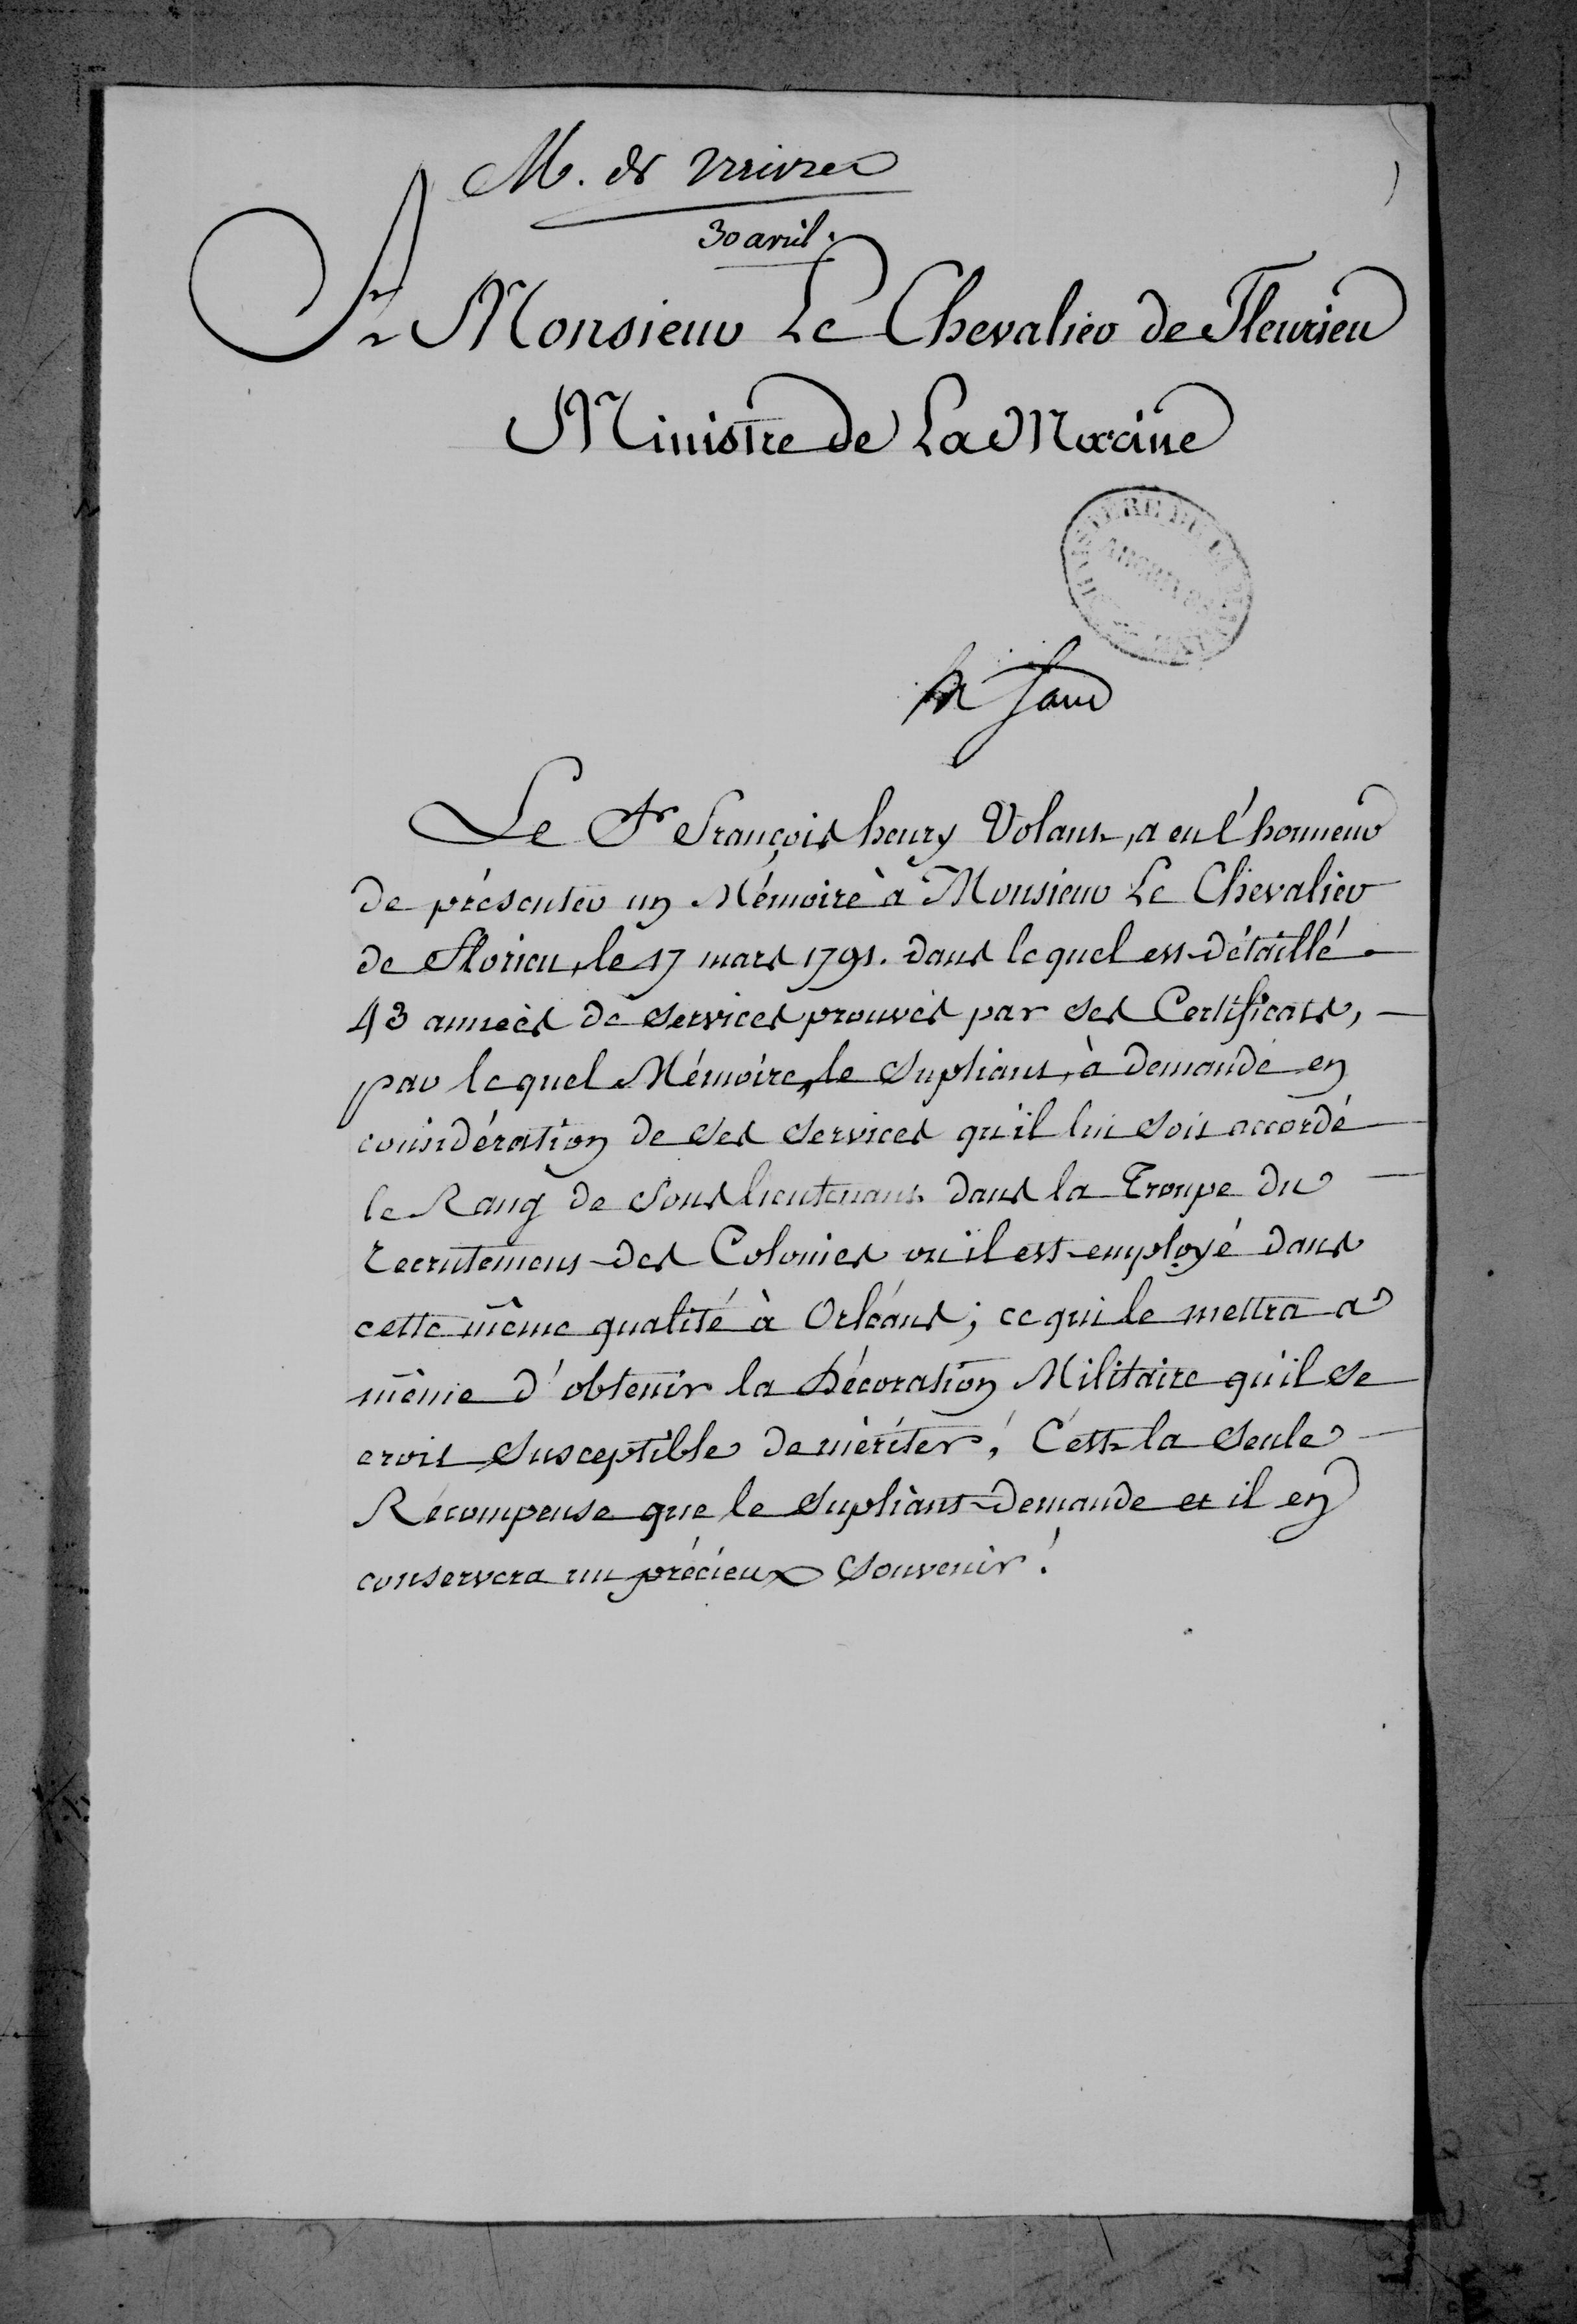 M. de
30 avril.
A Monsieur Le Chevalier de Fleurieu
Ministre de La Marine
Le Sr François henry Volant, a eu l'honneur
de présenter un Mémoire à Monsieur Le Chevalier
de Florieu, le 17 mars 1791. dans lequel est détaillé
43 années de services prouvés par ses Certificats,
par lequel Mémoire, le supliant, à demandé en
considération de ses services qu'il lui soit accordé
le Rang de Sous lieutenant dans la Troupe du
recrutement des Colonies ou il est employé dans
cette même qualité à Orléans; ce qui le mettra a
même d'obtenir la Décoration Militaire qu'il se
croit susceptible de mériter; C'est la seule
Récompense que le supliant demande et il en
conservera un précieux souvenir!